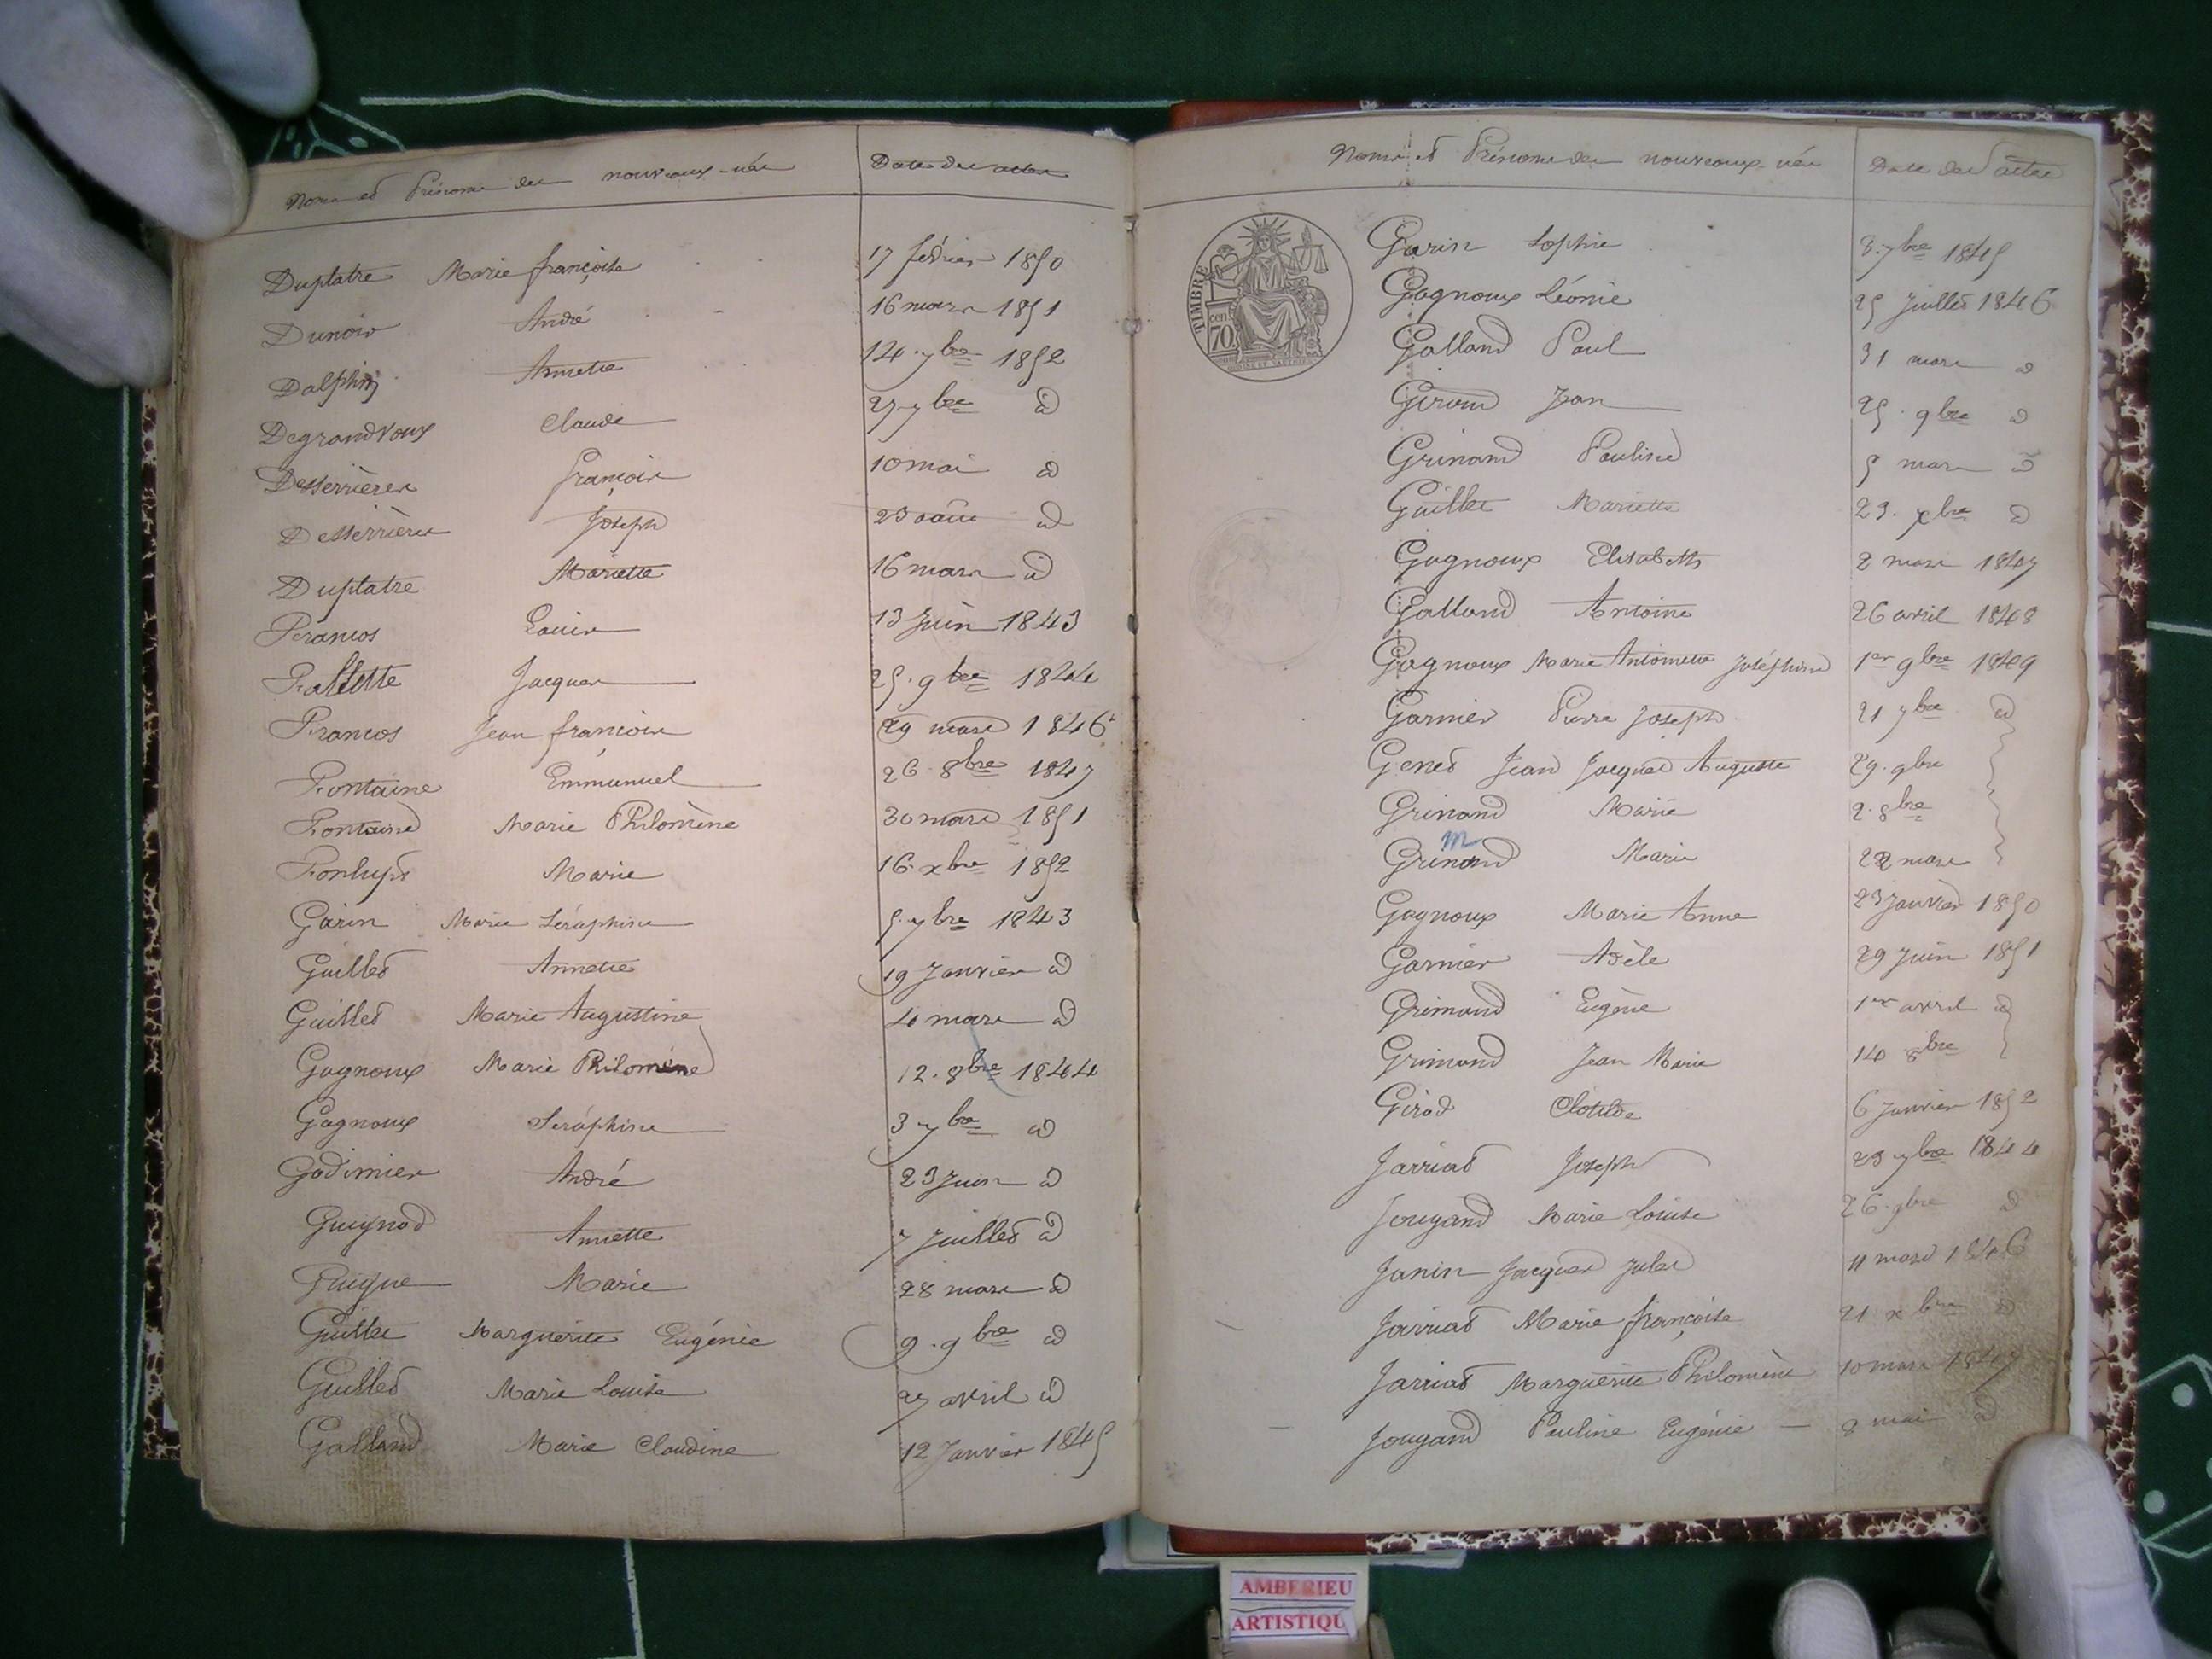 Noms et Prénoms des nouveaux-nés Date des actes
Duplatre Marie françoise 17 février 1850
Dunoir André 16 mars 1851
Dalphin Annette 14. 7bre 1852
Degrandvoux Claude 27 7bre d
Desserrières françois 10 mai d
Desserrières Joseph 23 août d
Duplatre Mariette 16 mars d
Francos Louis 13 Juin 1843
Falette Jacques 25. 9bre 1844
Francos Jean françois 29 mars 1846
Fontaine Emmanuel 26. 8bre 1847
Fontaine Marie Philomène 30 mars 1851
Fonlupt Marie 16 xbre 1852
Garin Marie Séraphine 5. 7bre 1843
Guillet Annette 19 Janvier d
Guillet Marie Augustine 4 mars d
Gagnoux Marie Philomène 12. 8bre 1844
Gagnoux Séraphine 3 7bre d
Godimier André 23 Juin d
Guignod Annette 7 Juillet d
Guigue Marie 28 mars d
Guillet Marguerite Eugénie 9. 9bre d
Guillet Marie Louise 27 avril d
Galland Marie Claudine 12 Janvier 1845
Noms et Prénoms des nouveaux-nés Date des actes
TIMBRE
70
Garin Sophie 3. 7bre 1845
Gagnoux Léonie 25 Juillet 1846
Galland Paul 31 mars d
Giroud Jean 25. 9bre d
Grinand Pauline 5 mars d
Guillet Mariette 23. xbre d
Gagnoux Elisabeth 2 mars 1847
Galland Antoine 26 avril 1848
Gagnoux Marie Antoinette Joséphine 1er 9bre 1849
Garnier Pierre Joseph 21 7bre d
Genet Jean Jacques Auguste 29. 9bre
Grinand Marie 2. 8bre
m
Grinand Marie 22 mars
Gagnoux Marie Anne 23 Janvier 1850
Garnier Adèle 29 Juin 1851
Grimand Eugène 1er avril d
Grimand Jean Marie 14 8bre
Girod Clotilde 6 Janvier 1852
Jarriat Joseph 23 7bre 1844
Jougand Marie Louise 26. 9bre d
Janin Jacques Jules 11 mars 1846
Jarriat Marie françoise 21 xbre d
Jarriat Marguerite Philomène 10 mars 1847
Jougand Pauline Eugénie 8 mai d
AMBERIEU
ARTISTIQU